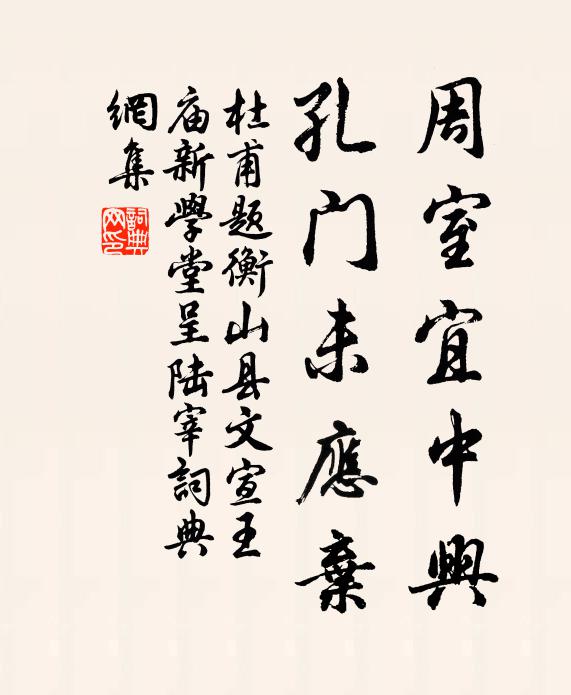 周室宜中興
孔门未應棄
杜甫题衡山县文宣王
庙新學堂呈陆宰詞典
網集
詞典网印